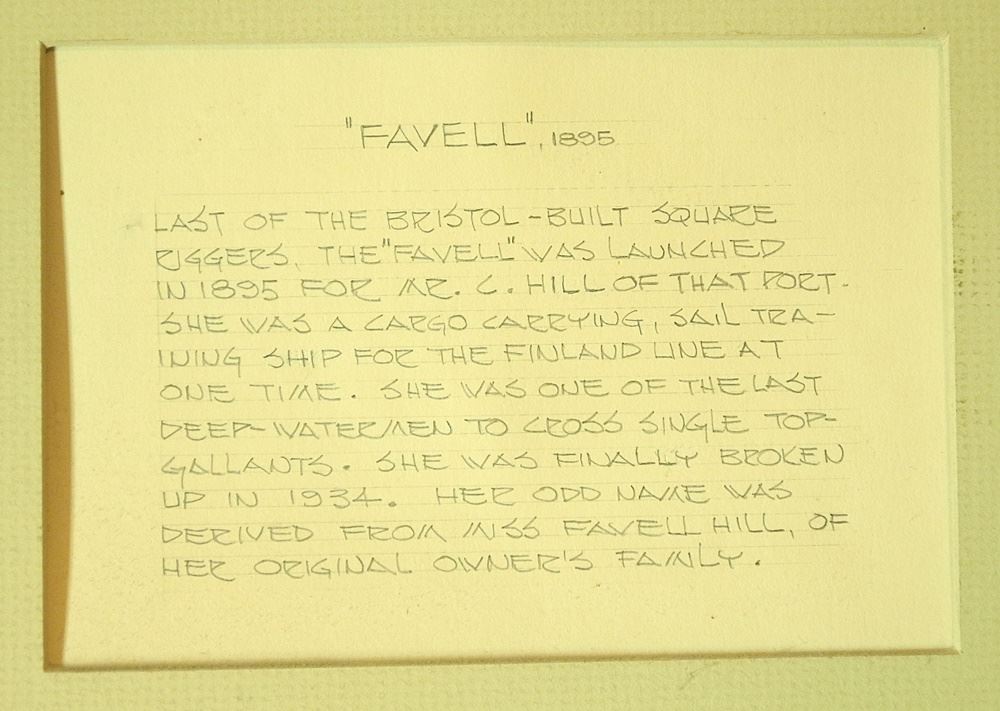 "FAVELL", 1895
LAST OF THE BRISTOL-BUILT SQUARE
RIGGERS, THE "FAVELL" WAS LAUNCHED
IN 1895 FOR MR. C. HILL OF THAT PORT.
SHE WAS A CARGO CARRYING, SAIL TRA-
INING SHIP FOR THE FINLAND LINE AT
ONE TIME. SHE WAS ONE OF THE LAST
DEEP-WATERMEN TO CROSS SINGLE TOP-
GALLANTS. SHE WAS FINALLY BROKEN
UP IN 1934. HER ODD NAME WAS
DERIVED FROM MISS FAVELL HILL, OF
HER ORIGINAL OWNER'S FAMILY.